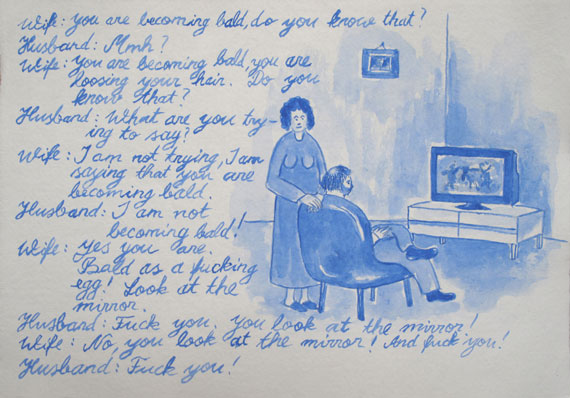 Wife: You are becoming bald, do you know that?
Husband: Mmh?
Wife: You are becoming bald, you are
loosing your hair. Do you
know that?
Husband: What are you try-
ing to say?
Wife: I am not trying, I am
saying that you are
becoming bald.
Husband: I am not
becoming bald!
Wife: Yes you are.
Bald as a fucking
egg! Look at the
mirror.
Husband: Fuck you. You look at the mirror!
Wife: No, you look at the mirror! And fuck you!
Husband: Fuck you!